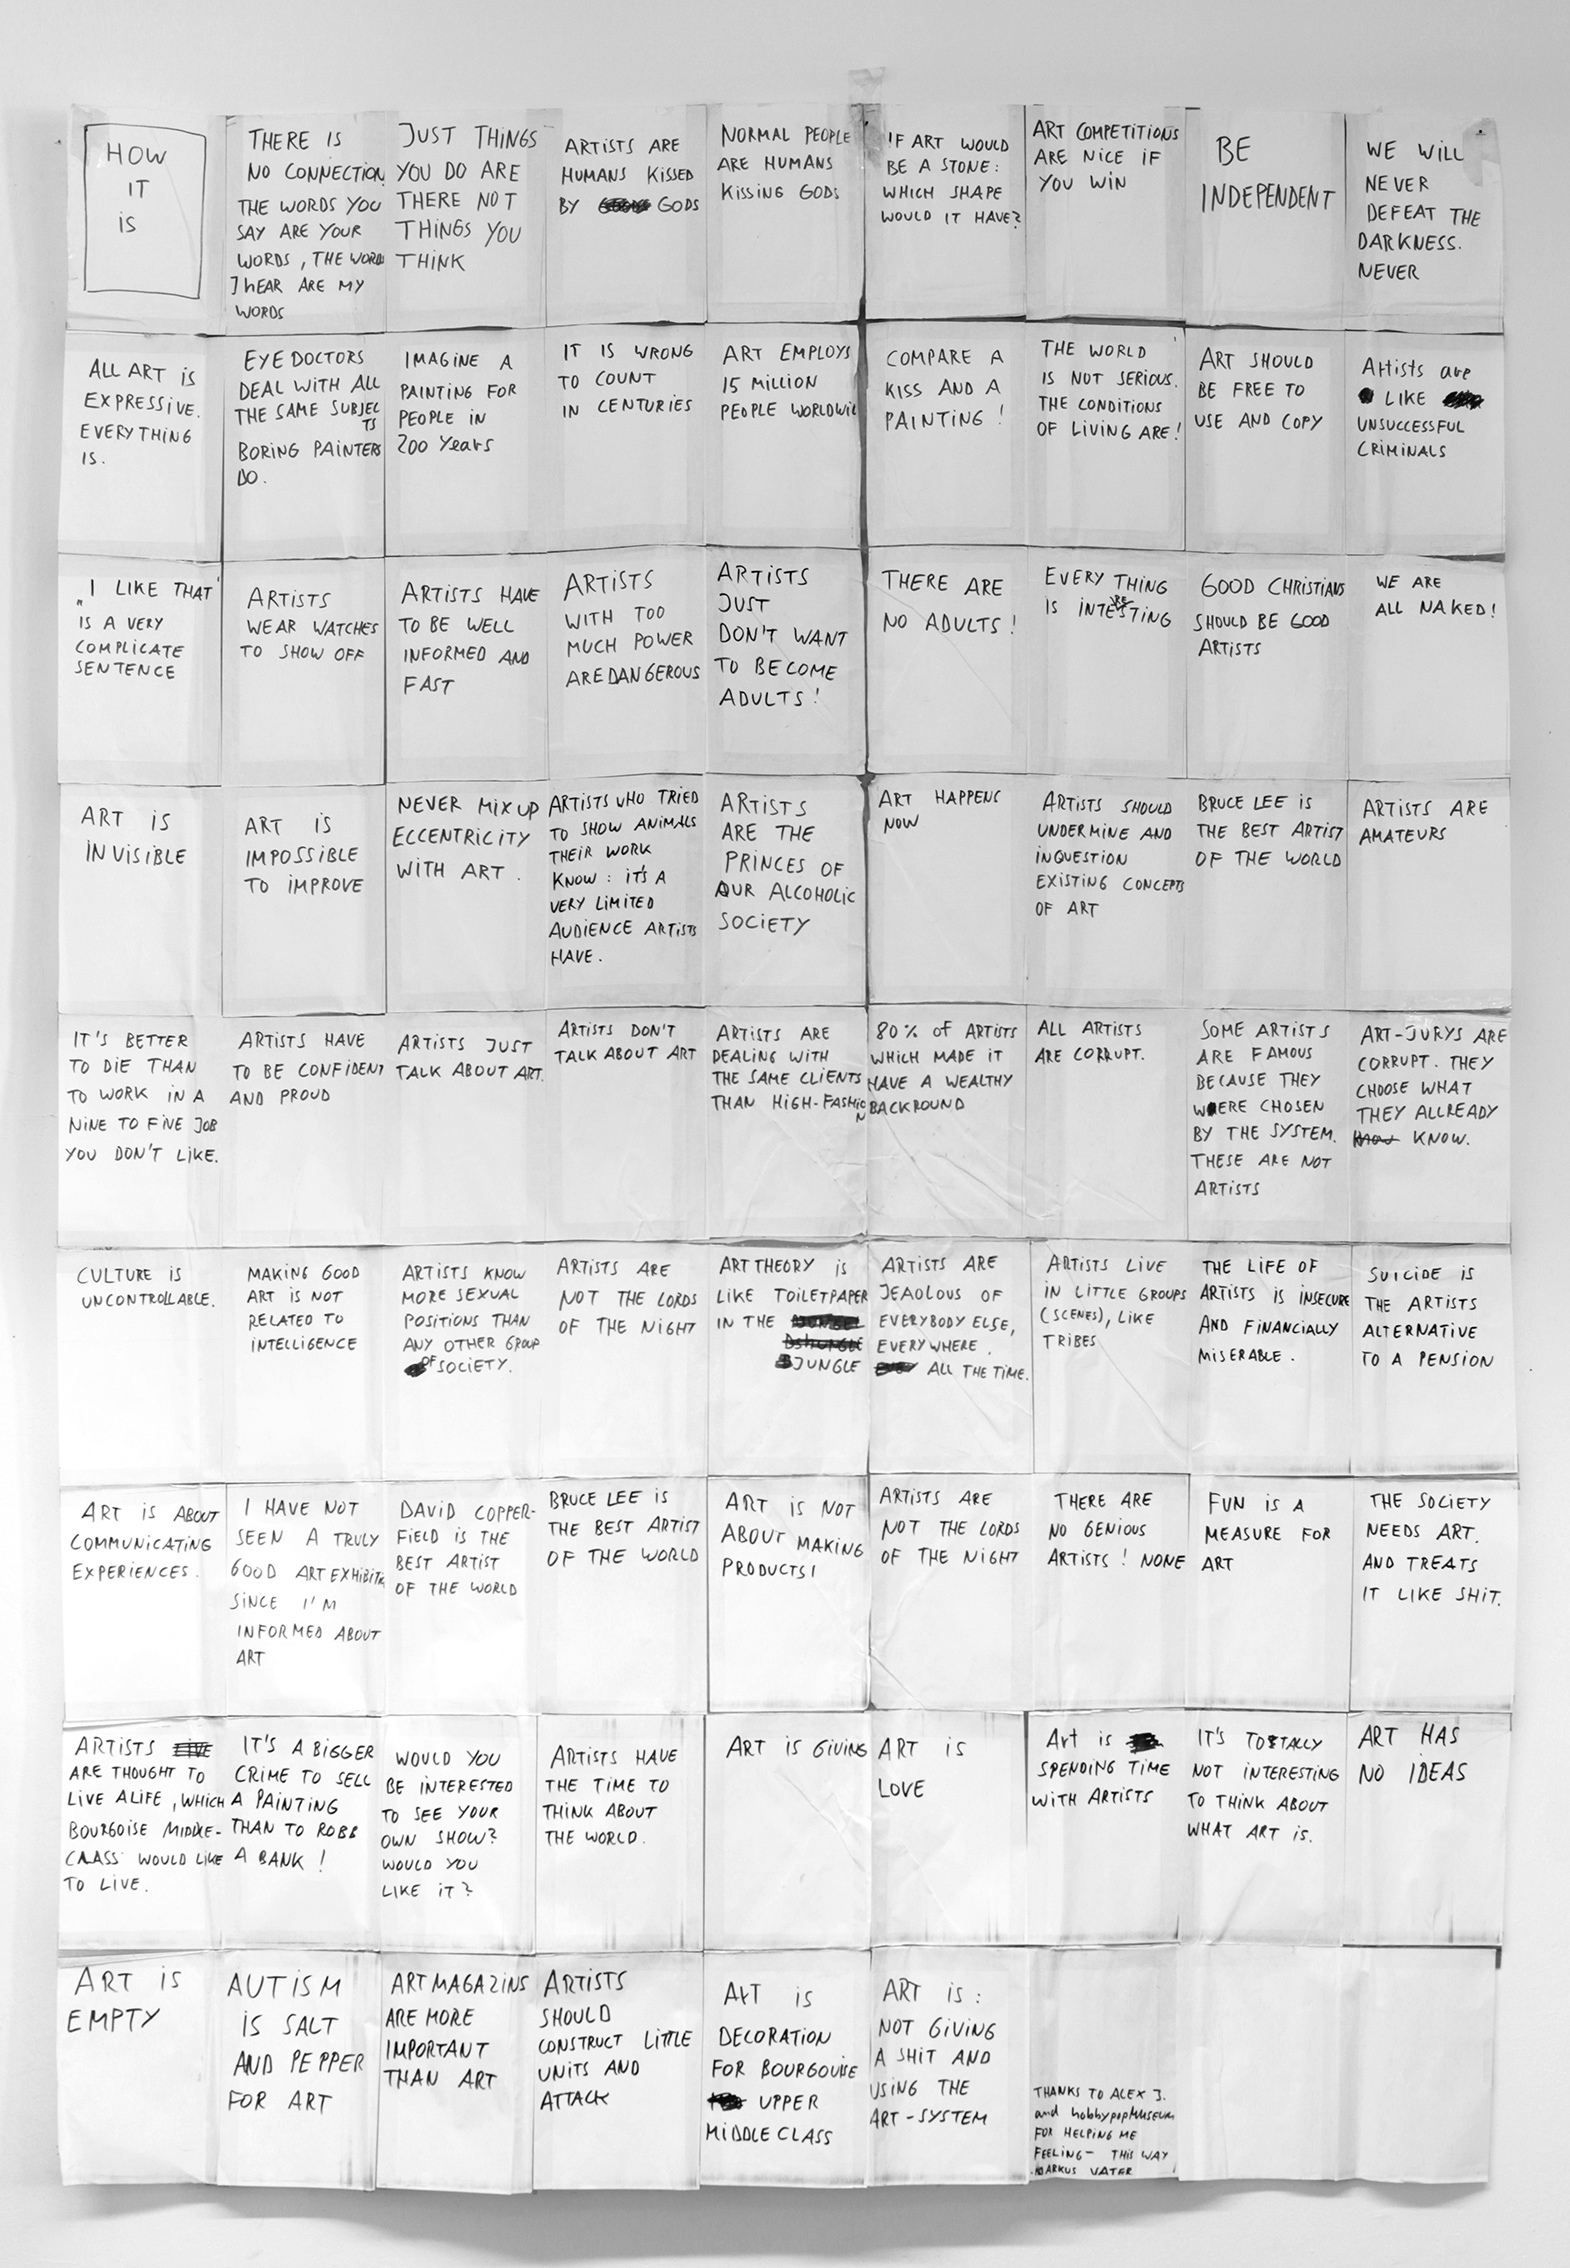 HOW
IT
IS
THERE IS
NO CONNECTION
THE WORDS YOU
SAY ARE YOUR
WORDS, THE WORDS
I HEAR ARE MY
WORDS
JUST THINGS
YOU DO ARE
THERE NOT
THINGS YOU
THINK
ARTISTS ARE
HUMANS KISSED
BY GODS
NORMAL PEOPLE
ARE HUMANS
KISSING GODS
IF ART WOULD
BE A STONE:
WHICH SHAPE
WOULD IT HAVE?
ART COMPETITIONS
ARE NICE IF
YOU WIN
BE
INDEPENDENT
WE WILL
NEVER
DEFEAT THE
DARKNESS.
NEVER
ALL ART IS
EXPRESSIVE.
EVERYTHING
IS.
EYE DOCTORS
DEAL WITH ALL
THE SAME SUBJEC
TS
BORING PAINTERS
DO.
IMAGINE A
PAINTING FOR
PEOPLE IN
200 Years
IT IS WRONG
TO COUNT
IN CENTURIES
ART EMPLOYS
15 MILLION
PEOPLE WORLDWI
COMPARE A
KISS AND A
PAINTING!
THE WORLD
IS NOT SERIOUS.
THE CONDITIONS
OF LIVING ARE!
ART SHOULD
BE FREE TO
USE AND COPY
Artists are
LIKE
UNSUCCESSFUL
CRIMINALS
„I LIKE THAT'
IS A VERY
COMPLICATE
SENTENCE
ARTISTS
WEAR WATCHES
TO SHOW OFF
ARTISTS HAVE
TO BE WELL
INFORMED AND
FAST
ARTISTS
WITH TOO
MUCH POWER
ARE DANGEROUS
ARTISTS
JUST
DON'T WANT
TO BECOME
ADULTS!
THERE ARE
NO ADULTS!
EVERYTHING
IS INTERESTING
GOOD CHRISTIANS
SHOULD BE GOOD
ARTISTS
WE ARE
ALL NAKED!
ART IS
INVISIBLE
ART IS
IMPOSSIBLE
TO IMPROVE
NEVER MIX UP
ECCENTRICITY
WITH ART.
ARTISTS WHO TRIED
TO SHOW ANIMALS
THEIR WORK
KNOW: IT'S A
VERY LIMITED
AUDIENCE ARTISTS
HAVE.
ARTISTS
ARE THE
PRINCES OF
OUR ALCOHOLIC
SOCIETY
ART HAPPENS
NOW
ARTISTS SHOULD
UNDERMINE AND
INQUESTION
EXISTING CONCEPTS
OF ART
BRUCE LEE IS
THE BEST ARTIST
OF THE WORLD
ARTISTS ARE
AMATEURS
IT'S BETTER
TO DIE THAN
TO WORK IN A
NINE TO FIVE JOB
YOU DON'T LIKE.
ARTISTS HAVE
TO BE CONFIDENT
AND PROUD
ARTISTS JUST
TALK ABOUT ART.
ARTISTS DON'T
TALK ABOUT ART
ARTISTS ARE
DEALING WITH
THE SAME CLIENTS
THAN HIGH-FASHIO
N
80% of ARTISTS
WHICH MADE IT
HAVE A WEALTHY
BACKROUND
ALL ARTISTS
ARE CORRUPT.
SOME ARTISTS
ARE FAMOUS
BECAUSE THEY
WERE CHOSEN
BY THE SYSTEM.
THESE ARE NOT
ARTISTS
ART-JURYS ARE
CORRUPT. THEY
CHOOSE WHAT
THEY ALLREADY
KNOW.
CULTURE IS
UNCONTROLLABLE.
MAKING GOOD
ART IS NOT
RELATED TO
INTELLIGENCE
ARTISTS KNOW
MORE SEXUAL
POSITIONS THAN
ANY OTHER GROUP
OF SOCIETY.
ARTISTS ARE
NOT THE LORDS
OF THE NIGHT
ART THEORY IS
LIKE TOILETPAPER
IN THE
JUNGLE
ARTISTS ARE
JEAOLOUS OF
EVERYBODY ELSE,
EVERYWHERE.
ALL THE TIME.
ARTISTS LIVE
IN LITTLE GROUPS
(SCENES), LIKE
TRIBES
THE LIFE OF
ARTISTS IS INSECURE
AND FINANCIALLY
MISERABLE.
SUICIDE IS
THE ARTISTS
ALTERNATIVE
TO A PENSION
ART IS ABOUT
COMMUNICATING
EXPERIENCES.
I HAVE NOT
SEEN A TRULY
GOOD ART EXHIBITI
SINCE I'M
INFORMED ABOUT
ART
DAVID COPPER-
FIELD IS THE
BEST ARTIST
OF THE WORLD
BRUCE LEE IS
THE BEST ARTIST
OF THE WORLD
ART IS NOT
ABOUT MAKING
PRODUCTS!
ARTISTS ARE
NOT THE LORDS
OF THE NIGHT
THERE ARE
NO GENIOUS
ARTISTS! NONE
FUN IS A
MEASURE FOR
ART
THE SOCIETY
NEEDS ART.
AND TREATS
IT LIKE SHIT.
ARTISTS
ARE THOUGHT TO
LIVE A LIFE, WHICH
BOURGOISE MIDDLE-
CLASS WOULD LIKE
TO LIVE.
IT'S A BIGGER
CRIME TO SELL
A PAINTING
THAN TO ROBB
A BANK!
WOULD YOU
BE INTERESTED
TO SEE YOUR
OWN SHOW?
WOULD YOU
LIKE IT?
ARTISTS HAVE
THE TIME TO
THINK ABOUT
THE WORLD.
ART IS GIVING
ART IS
LOVE
Art is
SPENDING TIME
WITH ARTISTS
IT'S TOTALLY
NOT INTERESTING
TO THINK ABOUT
WHAT ART IS.
ART HAS
NO IDEAS
ART IS
EMPTY
AUTISM
IS SALT
AND PEPPER
FOR ART
ART MAGAZINS
ARE MORE
IMPORTANT
THAN ART
ARTISTS
SHOULD
CONSTRUCT LITTLE
UNITS AND
ATTACK
ART IS
DECORATION
FOR BOURGOUISE
UPPER
MIDDLE CLASS
ART IS:
NOT GIVING
A SHIT AND
USING THE
ART-SYSTEM
THANKS TO ALEX J.
and hobbypopMUSEUM
FOR HELPING ME
FEELING- THIS WAY
MARKUS VATER